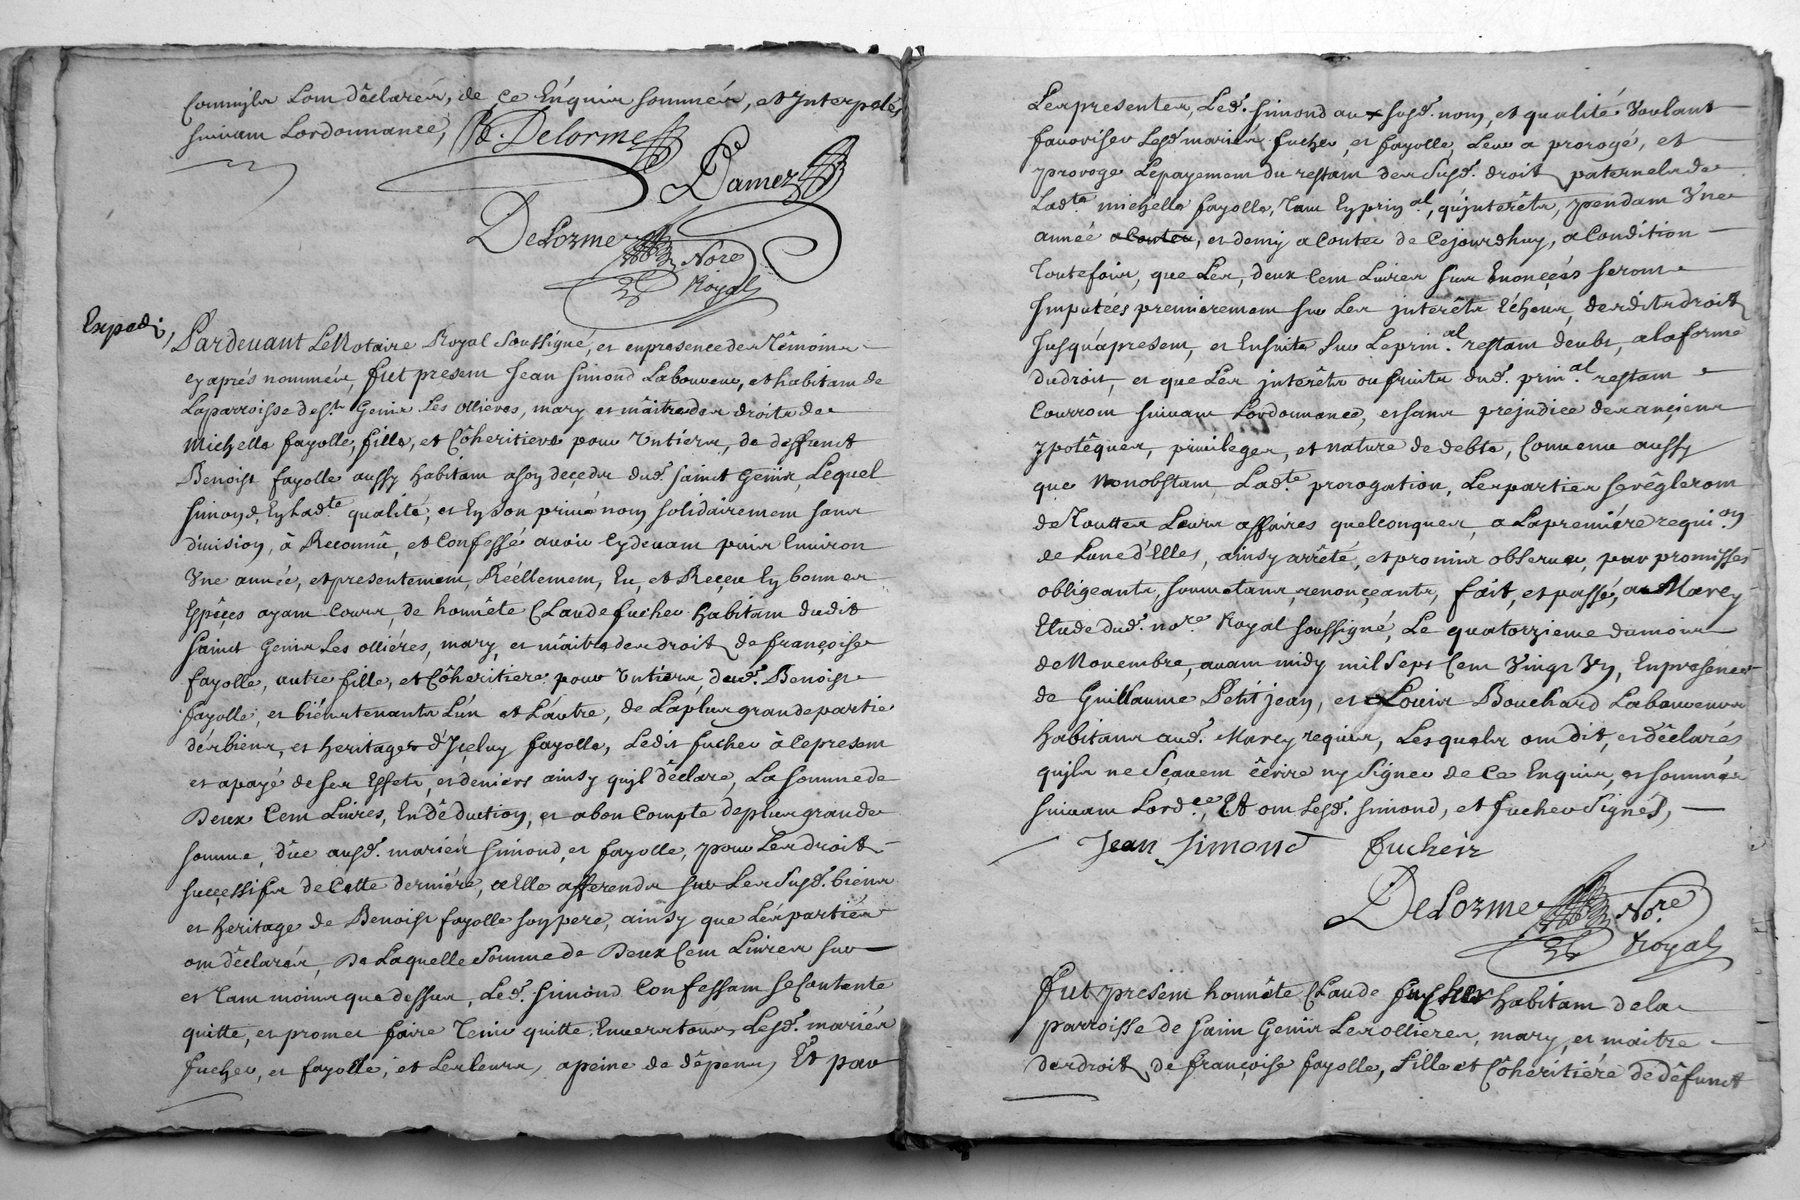 Comm'ils L'ont dêclarés, de ce Enquis sommés, et Jnterpelés
suivant Lordonnance,
Delorme
Damez
DeLorme Nore
Royal
Expedié
Pardevant LeNotaire Royal Soussigné, et en presence des Têmoins
cy aprés nommés, fut present Jean Simond Laboureur, et habitant de
Laparroisse de st. Genis Les ollieres, mary et maître des droits de
Michelle fayolle, fille, et Côheritiere pour Untiers, de deffunct
Benoist fayolle aussy habitant a son deceds dud. Saint Genis, Lequel
Simond, En Ladte qualité, et En son privé nom solidairement sans
division, à Reconnû, et Confessé avoir Cydevant puis Environ
Une année, et presentement, Réellement, Eu, et Reçeu En bonnes
Espêces ayant Cours, de honnête Claude fucher habitant dudit
Saint Genis Les olliéres, mary, et maître des droits de françoise
fayolle, autre fille, et Côheritiere pour Untiers, dud. Benoist
fayolle, et biéns tenants L'un et L'autre, de La plus grande partie
dés biens, et heritages d'Jçeluy fayolle, Ledit fucher à Ce present
et a payé de ses Effets, et deniers ainsy qu'jl déclare, La somme de
Deux Cent Livres, En dêduction, et a bon Compte de plus grande
somme, dûe ausd. mariés Simond, et fayolle, pour Les droits
successifs de Cette derniére, a Elle afferends sur Les Susd. biens
et heritage de Benoist fayolle son pere, ainsy que Lés partiés
ont dêclarés, De Laquelle Somme de Deux Cent Livres sur
et Tant moins que dessus, Led. Simond Confessant se Contente
quitte, et promet faire Tenir quitte Envers tous, Lesd. mariés
fucher, et fayolle, et Les Leurs, a peine de dêpens, Et par
Les presentes, Led. Simond au susd. nom, et qualité Voulant
favoriser Lesd. mariés fucher, et fayolle, Leur a prorogé, et
proroge Le payement du restant des Susd. droits paternels de
Ladte. michelle fayolle, Tant En prinal, qu'jnterêts, pendant Une
année a Conter, et demy a Conter de Cejourd'huy, a Condition
Toutefois, que Les, deux Cent Livres sus Enonçées seront
Jmputées premierement sur Les jnterêts Echeus, desdits droits
Jusqu'á present, et Ensuite sur Le prinal. restant deubt, a la forme
du droit, et que Les jnterêts ou fruits dud. prinal. restant
Courront suivant Lordonnance, et sans prejudice des ançiens
ypotêques, privileges, et nature de debte, Convenu aussy
que Nonobstant, Ladte prorogation, Les parties se rêgleront
de Touttes Leurs affaires quelconques, a La premiére requion
de L'une d'Elles, ainsy arrêté, et promis observer, par promesses
obligeants, soumetans, renonçeants, fait, et passé, au Marcy
Etude dud. nore Royal soussigné, Le quatorzieme du mois
de Novembre, avant midy mil Sept Cent Vingt Un, En presence
de Guillaume Petit jean, et Louis Bouchard Laboureurs
habitans aud. Marcy requis, Lesquels ont dit, et dêclarés
qu'jls ne sçavent êcrire ny signer de Ce Enquis, et sommés
suivant Lordce, Et ont Lesd. Simond, et fucher Signés,
Jean Simond fucheir
DeLorme Nore.
Royal
Fut present honnête Claude fucher habitant de la
parroisse de saint Genis Les ollieres, mary, et maitre
des droits de françoise fayolle, fille et Côheritiére de dêfunct